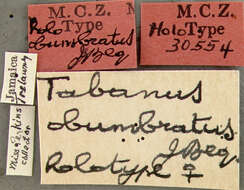 M.C.Z.
HoloType
obumbratus
J Beq
M.C.Z.
HoloType
30554
Jamaica
Trelawny
Miss Perkins
collector.
Tabanus
obumbratus
J Beq.
Holotype ♀